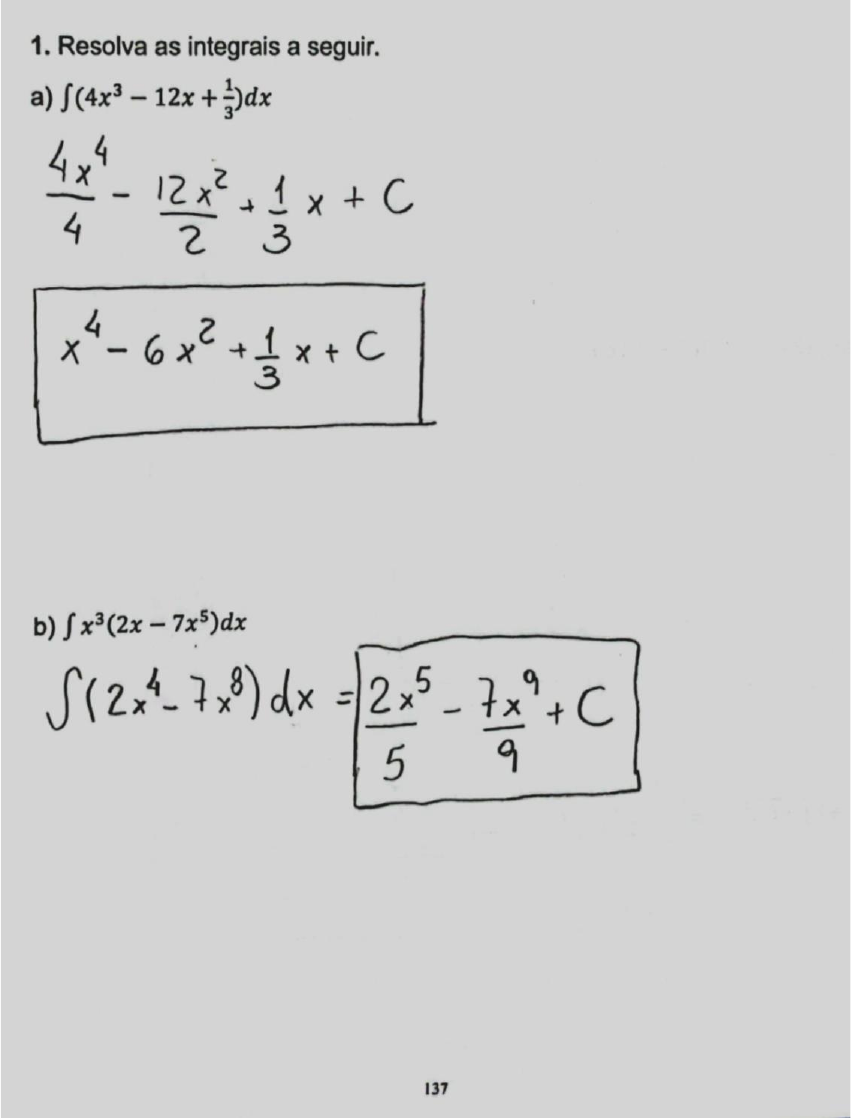 1. Resolva as integrais a seguir.
a) ∫(4x³ − 12x + 1/3)dx
4x⁴/4 − 12x²/2 + 1/3 x + C
x⁴ − 6x² + 1/3 x + C
b) ∫ x³(2x − 7x⁵)dx
∫(2x⁴ − 7x⁸) dx = 2x⁵/5 − 7x⁹/9 + C
137